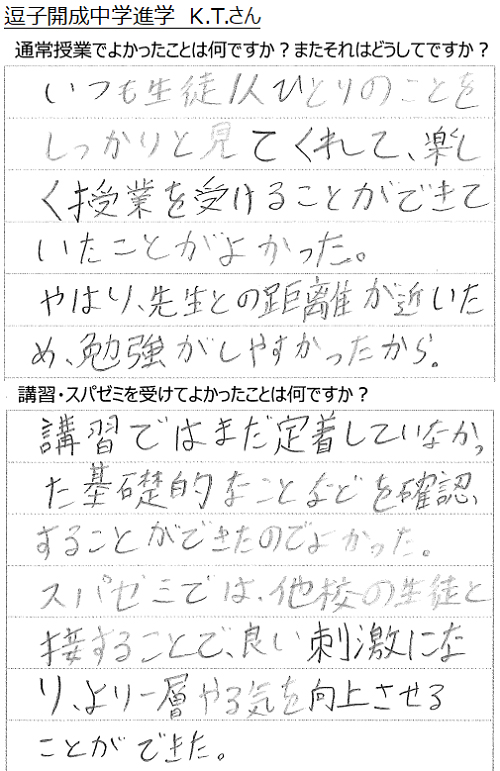 逗子開成中学進学 K.T.さん
通常授業でよかったことは何ですか？またそれはどうしてですか？
いつも生徒1人ひとりのことを
しっかりと見てくれて、楽し
く授業を受けることができて
いたことがよかった。
やはり、先生との距離が近いた
め、勉強がしやすかったから。
講習・スパゼミを受けてよかったことは何ですか？
講習ではまだ定着していなかっ
た基礎的なことなどを確認
することができたのでよかった。
スパゼミでは、他校の生徒と
接することで、良い刺激にな
り、より一層やる気を向上させる
ことができた。